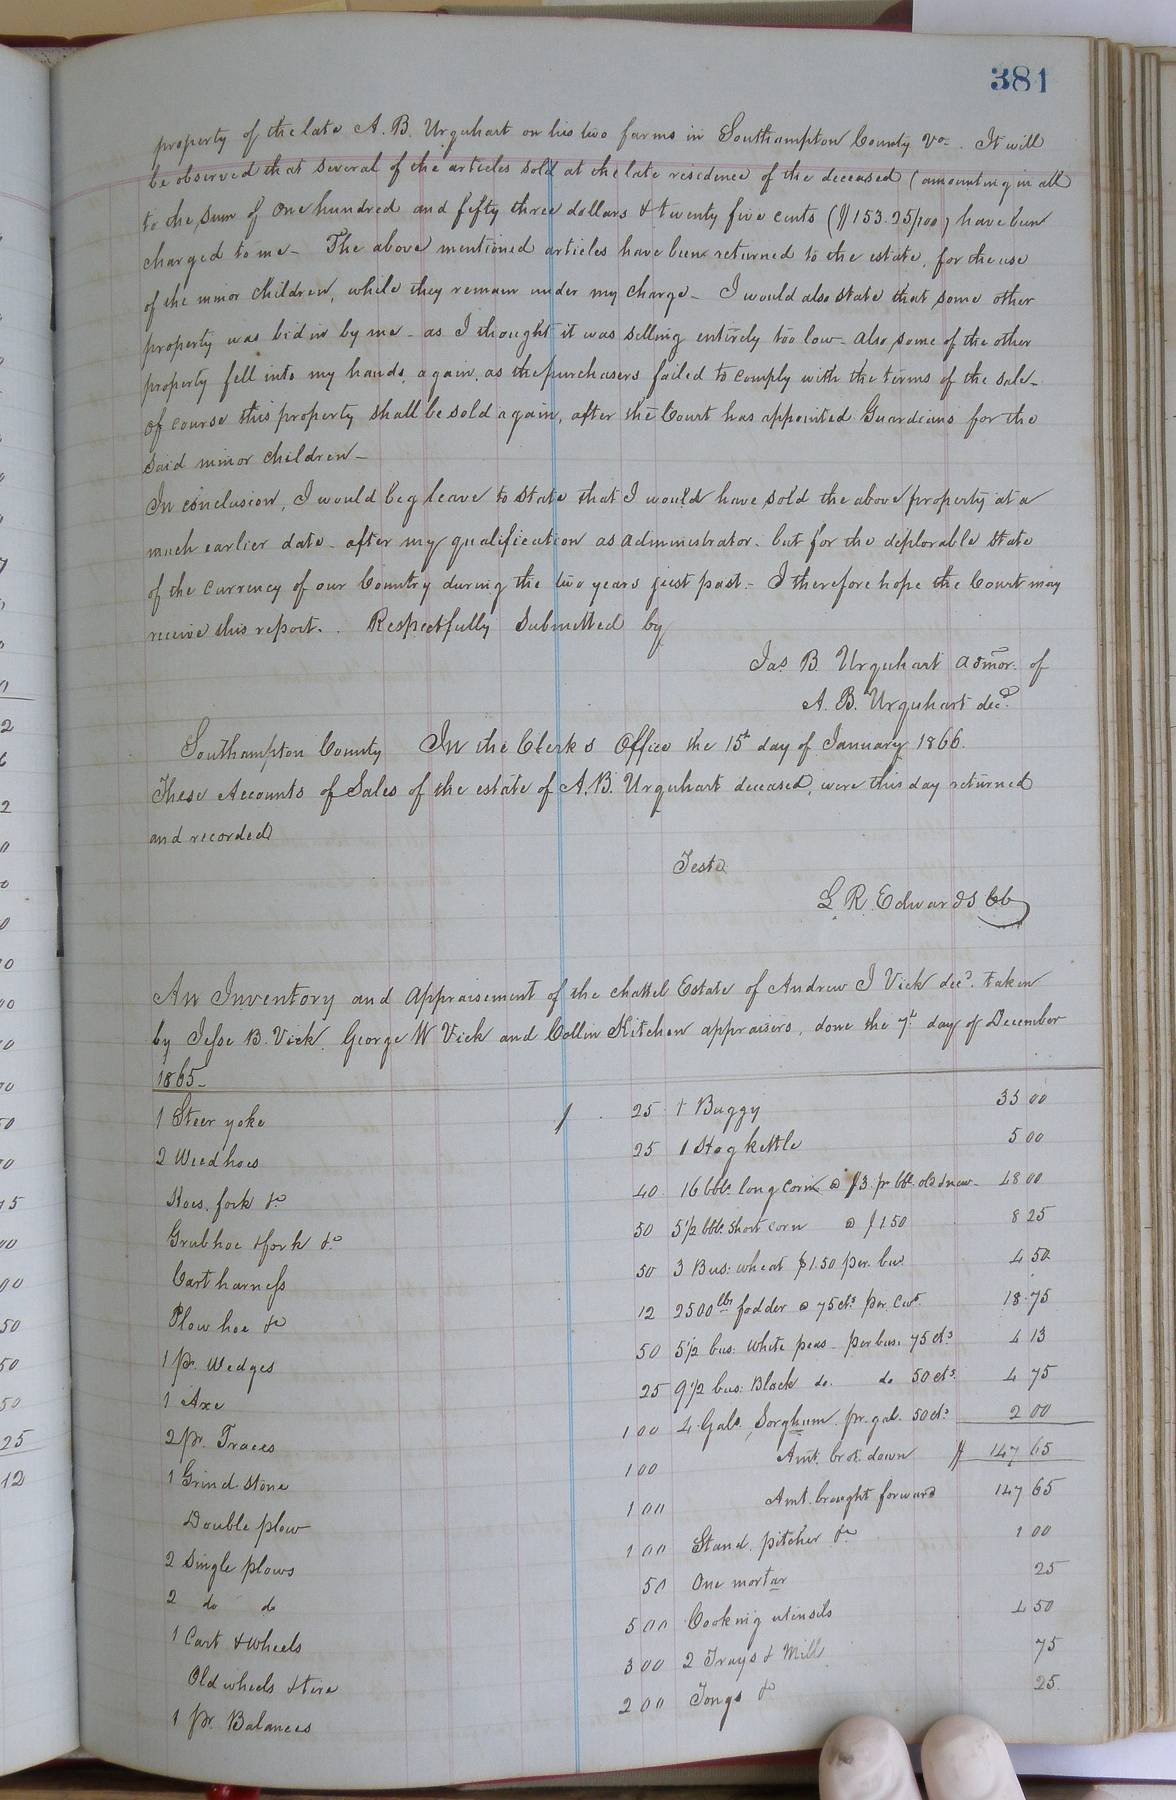 381
property of the late A. B. Urquhart on his two farms in Southampton County Va. It will
be observed that several of the articles sold at the late residence of the deceased (amounting in all
to the sum of One hundred and fifty three dollars & twenty five cents ($153.25/100) have been
charged to me - The above mentioned articles have been returned to the estate, for the use
of the minor Children, while they remain under my charge - I would also state that some other
property was bid in by me - as I thought it was selling entirely too low - also some of the other
property fell into my hands again, as the purchasers failed to comply with the terms of the sale -
Of course this property shall be sold again, after the Court has appointed Guardians for the
said minor children -
In conclusion, I would beg leave to state that I would have sold the above property at a
much earlier date - after my qualification as administrator. but for the deplorable state
of the currency of our Country during the two years just past. - I therefore hope the Court may
receive this report. Respectfully Submitted by
Jas. B. Urquhart admor. of
A. B. Urquhart decd.
Southampton County In the Clerks Office the 15t day of January 1866.
These Accounts of Sales of the estate of A. B. Urquhart deceased, were this day returned
and recorded
Teste
L. R. Edwards CC
An Inventory and appraisement of the chattel Estate of Andrew J Vick decd. taken
by Jesse B. Vick, George W Vick and Collin Kitchen appraisers, done the 7t day of December
1865 -
1 Steer yoke 25 1 Buggy 35 00
2 Weedhoes 25 1 Hog kettle 5 00
Hoes, fork &c 40 16 bbls. long corn @ $3. pr bbl. old & new - 48 00
Grubhoe & fork &c 50 5 1/2 bbls. short corn @ $1.50 8 25
Cart harness 50 3 Bus: wheat $1.50 per. bus 4 50
Plow hoe &c 12 2500 lbs fodder @ 75 cts per. Cwt. 18.75
1 pr. Wedges 50 5 1/2 bus: White peas - per bus. 75 cts 4 13
1 Axe 25 9 1/2 bus: Black do. do 50 cts. 4 75
2 pr. Traces 1 00 4 Gals. Sorghum pr. gal. 50 cts 2 00
1 Grind stone 1 00 Amt. brot. down $ 147 65
Double plow 1 00 Amt. brought forward 147 65
2 single plows 1 00 Stand, pitcher &c 1 00
2 do do 50 One mortar 25
1 Cart & Wheels 5 00 Cooking utensils 4 50
Old wheels & tire 3 00 2 Trays & Mill 75
1 pr. Balances 2 00 Tongs &c 25